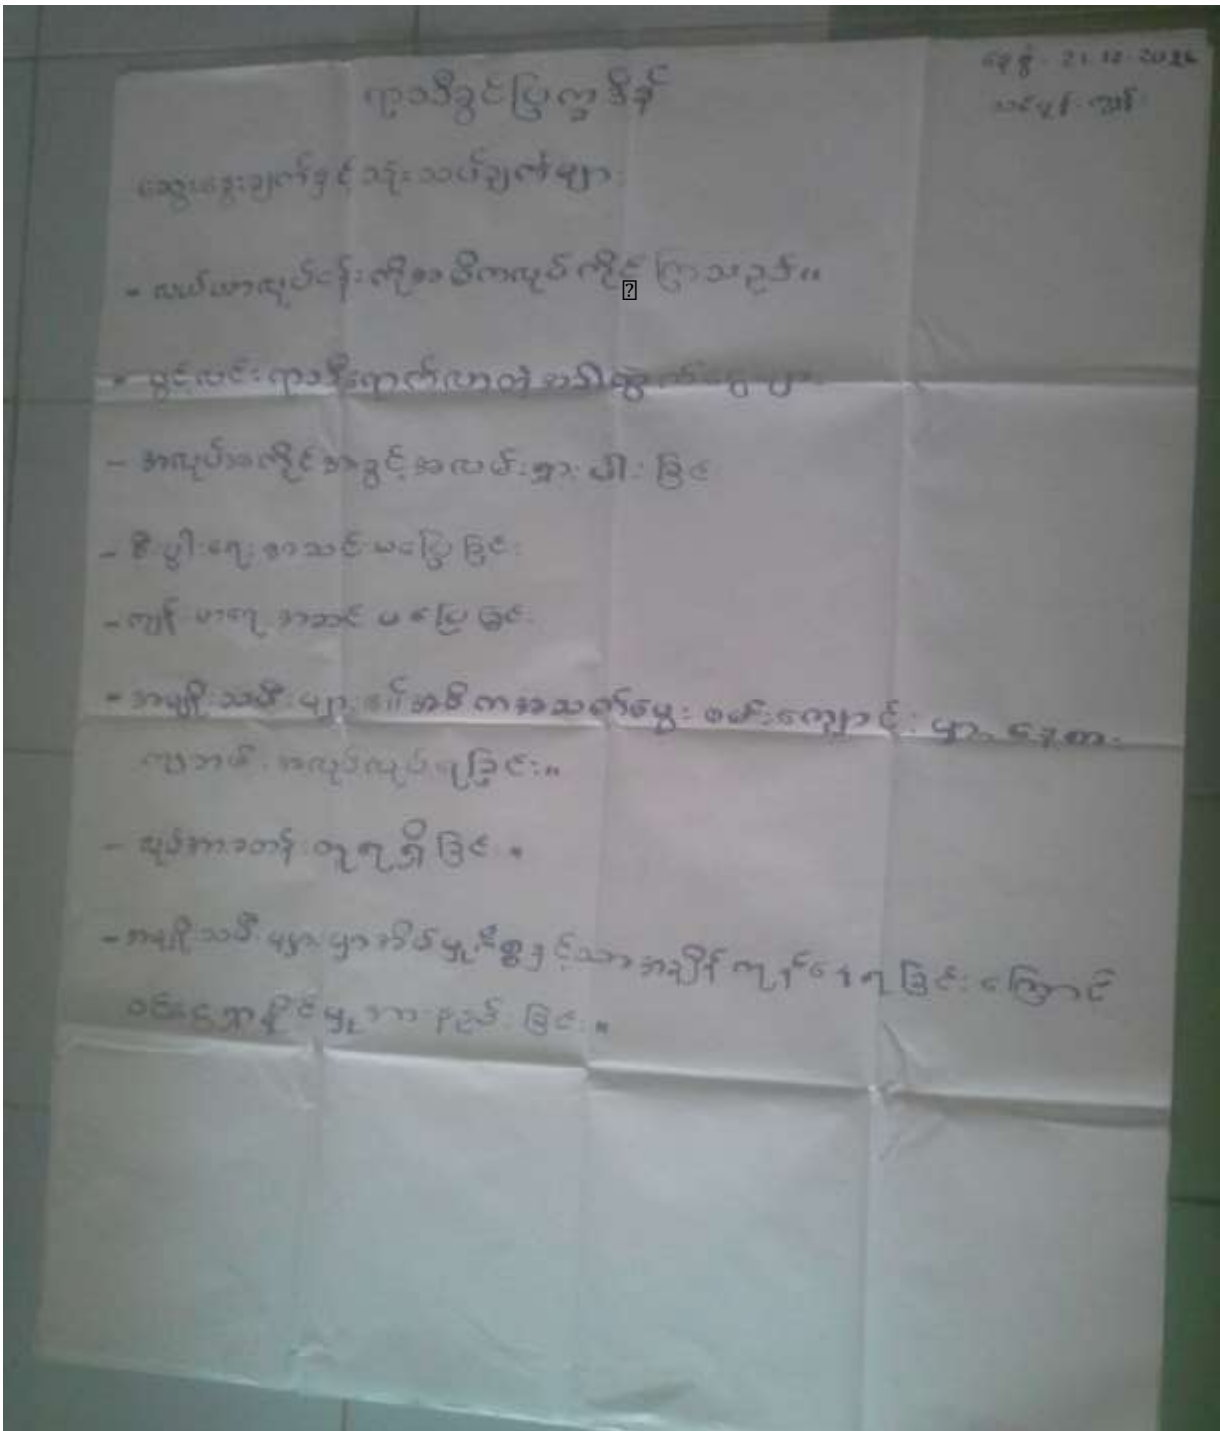 နေ့စွဲ - 21.12.2016
ရာသီခွင်ပြက္ခဒိန်
ဆွေးနွေးချက်နှင့် သုံးသပ်ချက်များ
- လယ်ယာလုပ်ငန်းကို အဓိကလုပ်ကိုင်ကြသည်။
- ပွင့်လင်းရာသီရောက်လာတဲ့အခါ
- အလုပ်အကိုင်အခွင့်အလမ်းရှားပါးခြင်း
- စီးပွါးရေးအဆင်မပြေခြင်း
- ကျန်းမာရေးအဆင်မပြေခြင်း
- အမျိုးသမီးများ အဓိကအသက်မွေးဝမ်းကျောင်းများ
အလုပ်လုပ်ရခြင်း။
- ရရှိခြင်း။
- အမျိုးသမီးများမှာအိမ်မှုကိစ္စနှင့်သာအချိန်ကုန်နေရခြင်းကြောင့်
ဝင်ငွေရှာနိုင်မှုအားနည်းခြင်း။